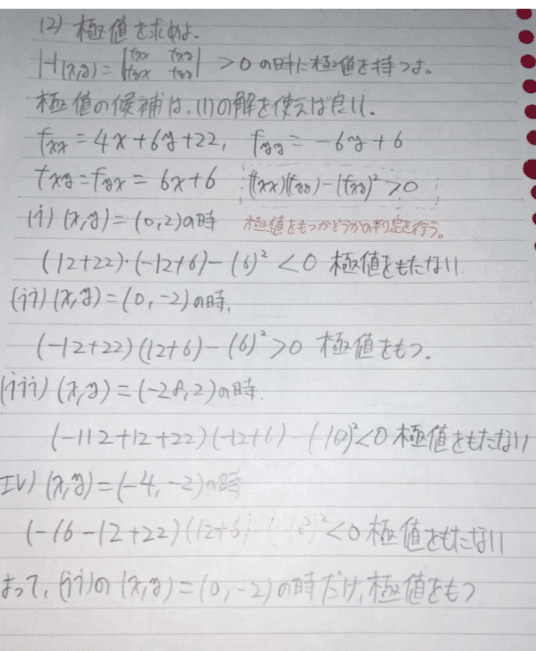 (2) 極値を求めよ.
H(x,y)=|fxx fxy fyx fyy| >0の時に極値を持つよ。
極値の候補は、(1)の解を使えば良い.
fxx=4x+6y+22, fyy=-6y+6
fxy=fyx=6x+6 (fxx)(fyy)-(fxy)²>0
(i) (x,y)=(0,2)の時 極値をもつかどうかの判定を行う。
(12+22)・(-12+6)-(6)²<0 極値をもたない
(ii) (x,y)=(0,-2)の時,
(-12+22)(12+6)-(6)²>0 極値をもつ.
(iii) (x,y)=(-28,2)の時.
(-112+12+22)(-12+6)-( )²<0 極値をもたない
IV) (x,y)=(-4,-2)の時
(-16-12+22)(12+6)-( )²<0 極値をもたない
よって, (ii)の(x,y)=(0,-2)の時だけ,極値をもつ